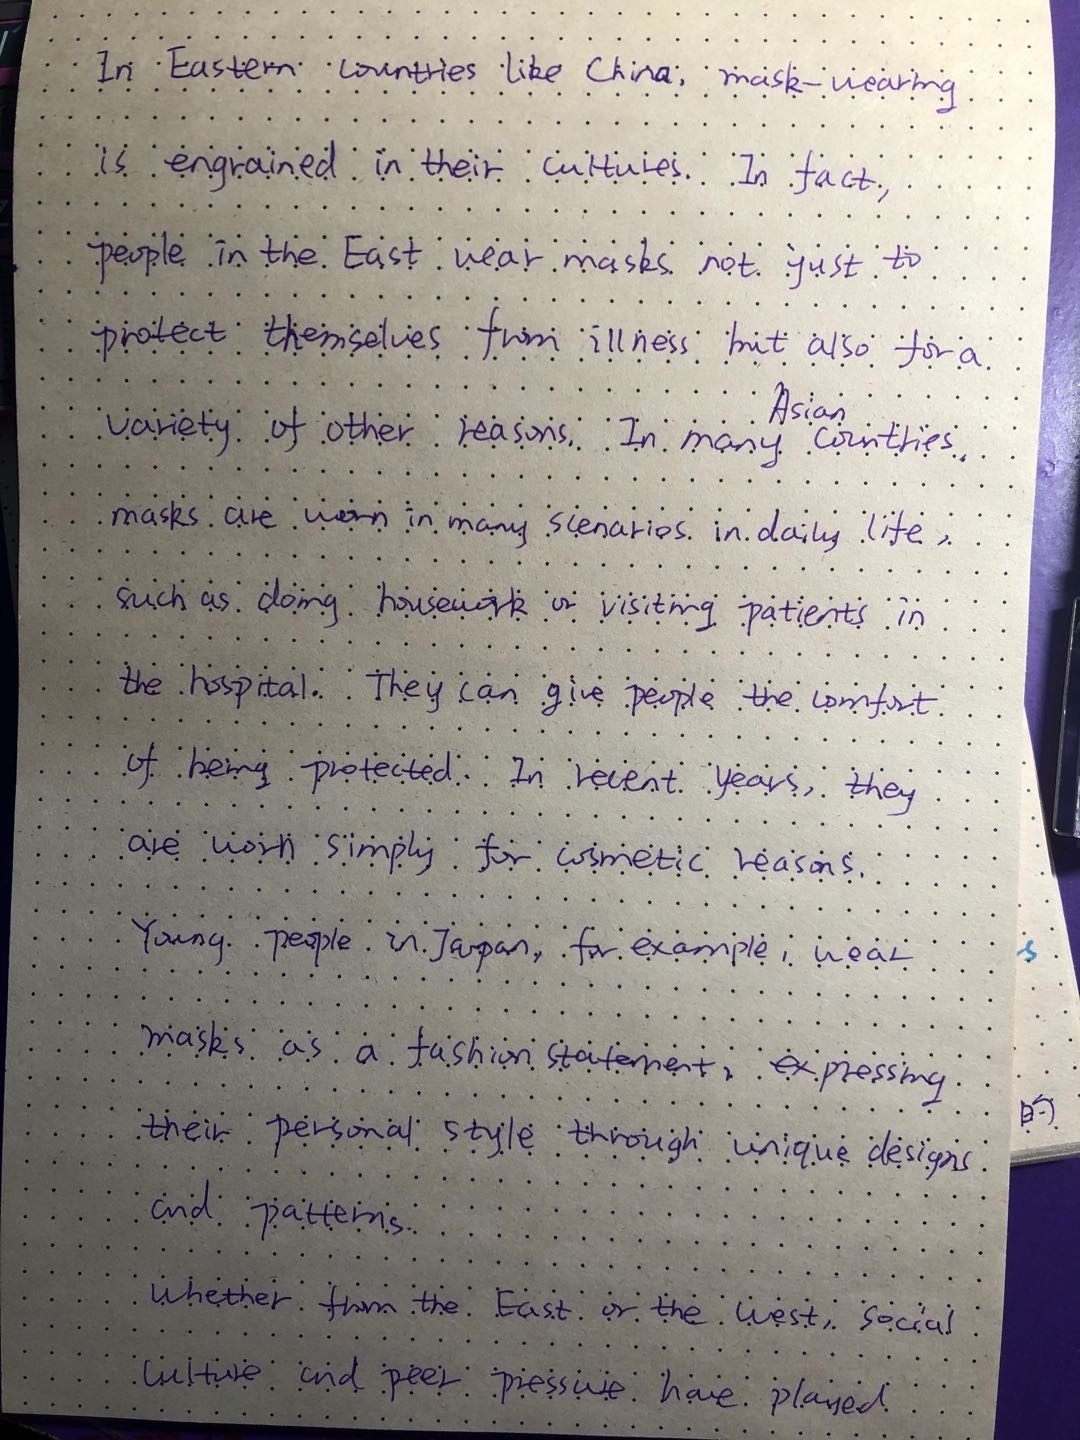 In Eastern countries like China, mask-wearing
is engrained in their cultures. In fact,
people in the East wear masks not just to
protect themselves from illness but also for a
Asian
variety of other reasons. In many countries,
masks are worn in many scenarios in daily life,
such as doing housework or visiting patients in
the hospital. They can give people the comfort
of being protected. In recent years, they
are worn simply for cosmetic reasons.
Young people in Japan, for example, wear
masks as a fashion statement, expressing
their personal style through unique designs
and patterns.
whether from the East or the west, social
culture and peer pressure have played
s
的